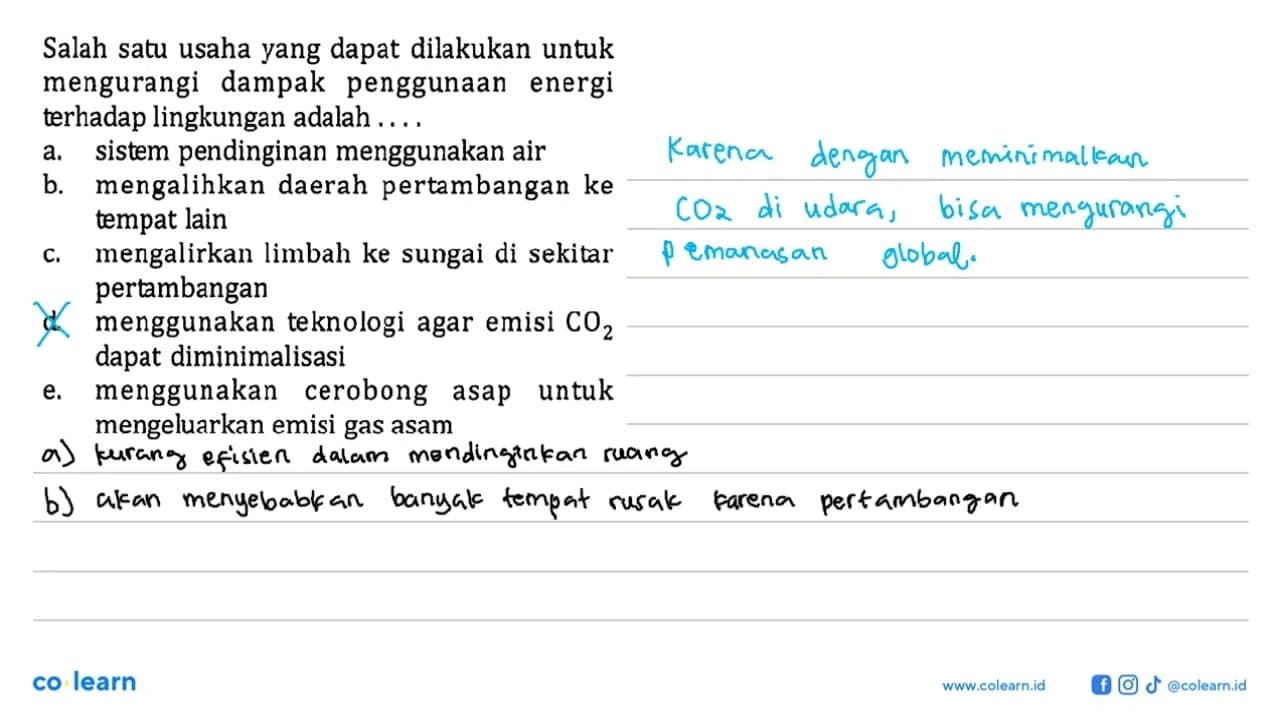 Salah satu usaha yang dapat dilakukan untuk
mengurangi dampak penggunaan energi
terhadap lingkungan adalah ....
a. sistem pendinginan menggunakan air
b. mengalihkan daerah pertambangan ke
tempat lain
c. mengalirkan limbah ke sungai di sekitar
pertambangan
d. menggunakan teknologi agar emisi CO₂
dapat diminimalisasi
e. menggunakan cerobong asap untuk
mengeluarkan emisi gas asam
Karena dengan meminimalkan
CO2 di udara, bisa mengurangi
pemanasan global.
a) kurang efisien dalam mendinginkan ruang
b) akan menyebabkan banyak tempat rusak karena pertambangan
co learn
www.colearn.id
@colearn.id